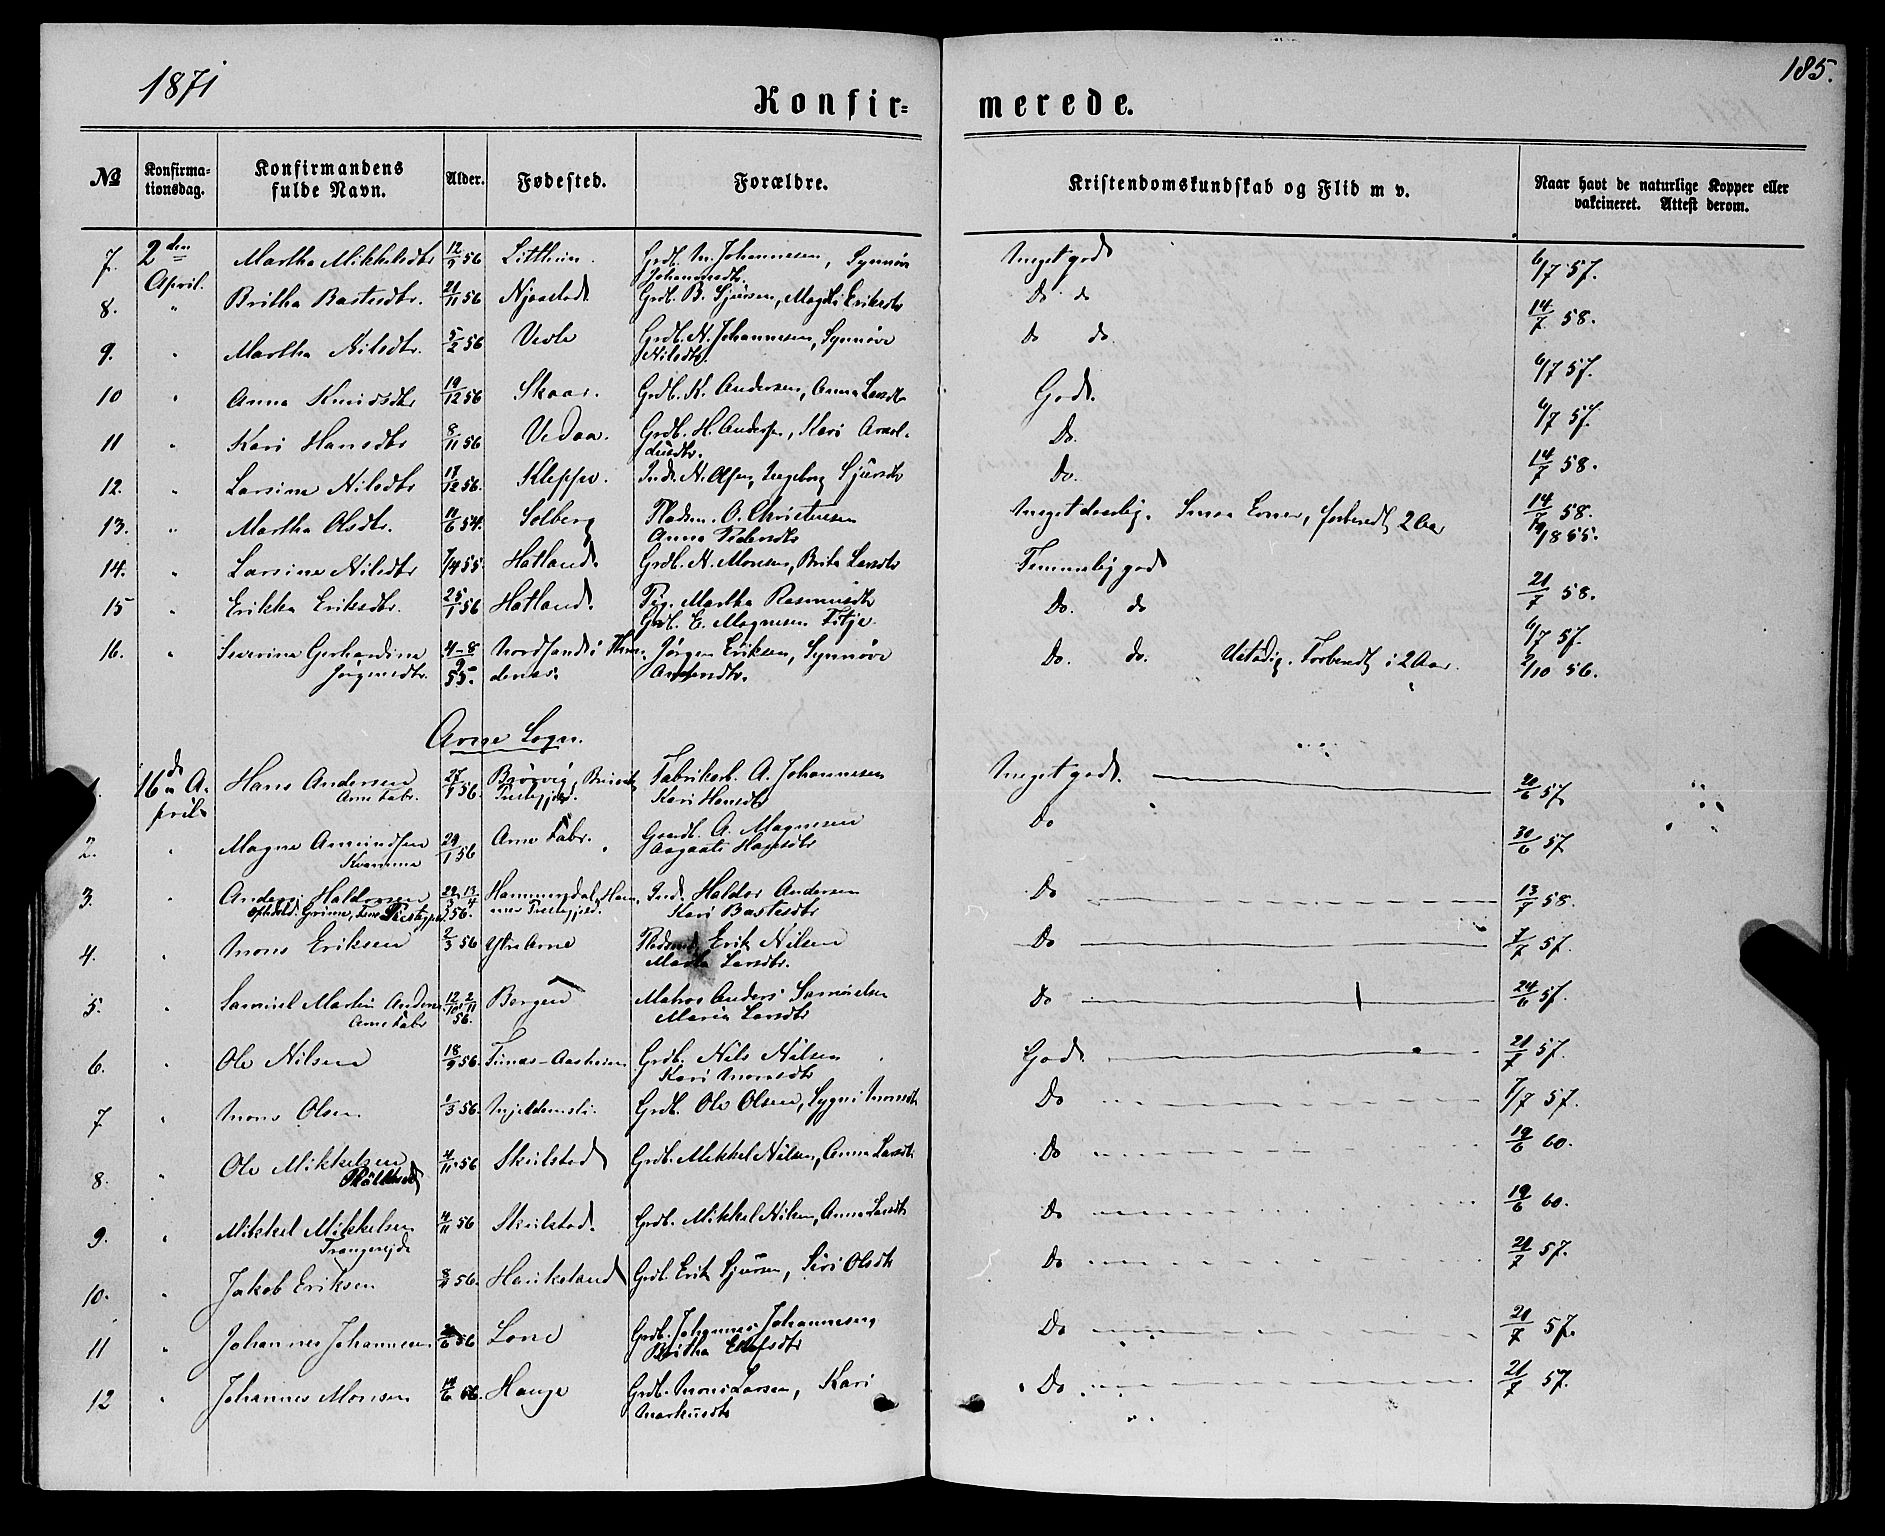 1871
185.
Konfir= merede.
№ Konfirma-tionsdag. Konfirmandens fulde Navn. Alder. Fødested. Forældre. Kristendomskundskab og Flid m v. Naar havt de naturlige Kopper eller vakcineret. Attest derom.
7. 2den April. Martha Mikkelsdtr 12/9 56 Grdb. M. Johannesen, Synnøve Johannesdtr. Meget godt 6/7 57.
8. " Britha Bastesdtr. 21/11 56 Njaastad. Grdb. B. Sjursen, Magdli Eriksdtr Do do 14/7 58.
9. " Martha Nilsdtr. 5/2 56 Vevle Grdb. N. Johannesen, Synnøve Nilsdtr. Do do. 6/7 57.
10 " Anna Knudsdtr 19/12 56 Skaar. Grdb. K. Andersen, Anna Larsdtr Godt. 6/7 57.
11 " Kari Hansdtr 8/11 56 Vedaa. Grdb. H. Anders, Kari Do. 14/7 58.
12. " Larsine Nilsdtr 17/12 56. Kleppe. Inds. N. Olsen, Ingeborg Sjursdtr Do. 14/7 58.
13. " Martha Olsdtr. 11/6 54. Solberg Pladsm. O. Christensen Anna Pedersdtr Meget daarlig. Smaa Evner, forberedt 2 Aar 1865.
14. " Larsine Nilsdtr 7/4 55. Hatland. Grdb. N. Monsen, Brita Larsdtr Temmelig godt 21/7 58.
15 " Erikka Eriksdtr. 25/1 56 Hatland. Pig. Martha Rasmusdtr Grdb. E. Magnesen Fitje. Do. do 6/7 57.
16. " Severine Gerhardine Jørgensdtr. 4-8/9 55. Nordfjord i Jørgen Eriksen, Synnøve Andersdtr. Do. do. Ustadig. Forberedt i 2 Aar. 2/10 56.
Arne Sogn.
1. 16de April Hans Andersen Arne Fabr. 27/1 56. Brørvig, Præstegjæld. Fabrikarb. A. Johannesen Kari Hansdtr Meget godt. 20/6 57
2. " Magne Amundsen Kvamme 29/1 56 Arne Fabr. Gaardb. A. Magnesen Aagaate Hansdtr Do 30/6 57
3. " Anders Haldorsen 22/3 13/4 56. Hammersdal, Hammer Præstegjeld. Inds. Haldor Andersen Kari Bastesdtr Do 13/7 58.
4. " Mons Eriksen 2/3 56 Ytre Arne Pladsmd. Erik Nilsen Martha Larsdtr. Do 7/7 57.
5. " Samuel Martin Anders Arne Fabr 12/10 2/11 56. Bergen Matros Anders Samuelsen Maria Larsdtr Do 24/6 57.
6. " Ole Nilsen 18/9 56. Tunæs-Aasheim Grdb. Nils Nilsen Kari Monsdtr Godt. 21/7 57.
7 " Mons Olsen 1/3 56. Mjeldemsli. Grdb. Ole Olsen, Sygni Monsdtr Do 7/7 57.
8. " Ole Mikkelsen 4/11 56 Skulstad Grdb. Mikkel Nilsen, Anna Larsdtr Do 19/6 60.
9. " Mikkel Mikkelsen Trangereide 4/11 56 Skulstad. Grdb. Mikkel Nilsen, Anna Larsdtr Do 19/6 60.
10. " Jakob Eriksen 56. Haukeland Grdb. Erik Sjursen, Siri Olsdtr Do 21/7 57.
11 " Johannes Johannesen 56 Lone Grdb. Johannes Johannesen, Britha Do 21/7 57.
12 " Johannes Monsen 56. Hauge Grdb. Mons Larsen, Kari Markusdtr Do 21/7 57.